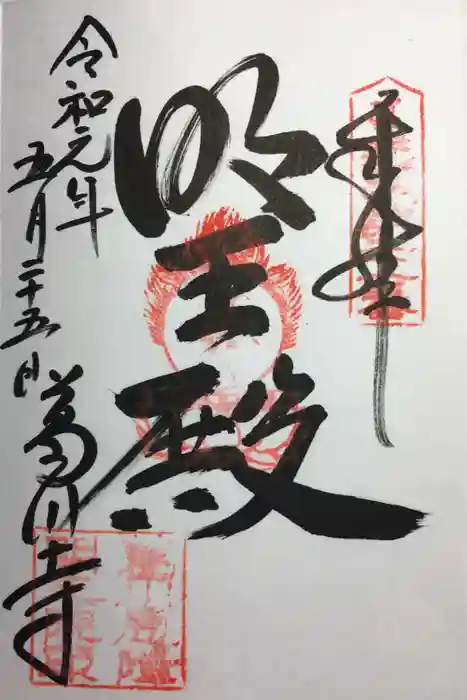 奉拝
明王殿
令和元年
五月二十五日
葛川寺